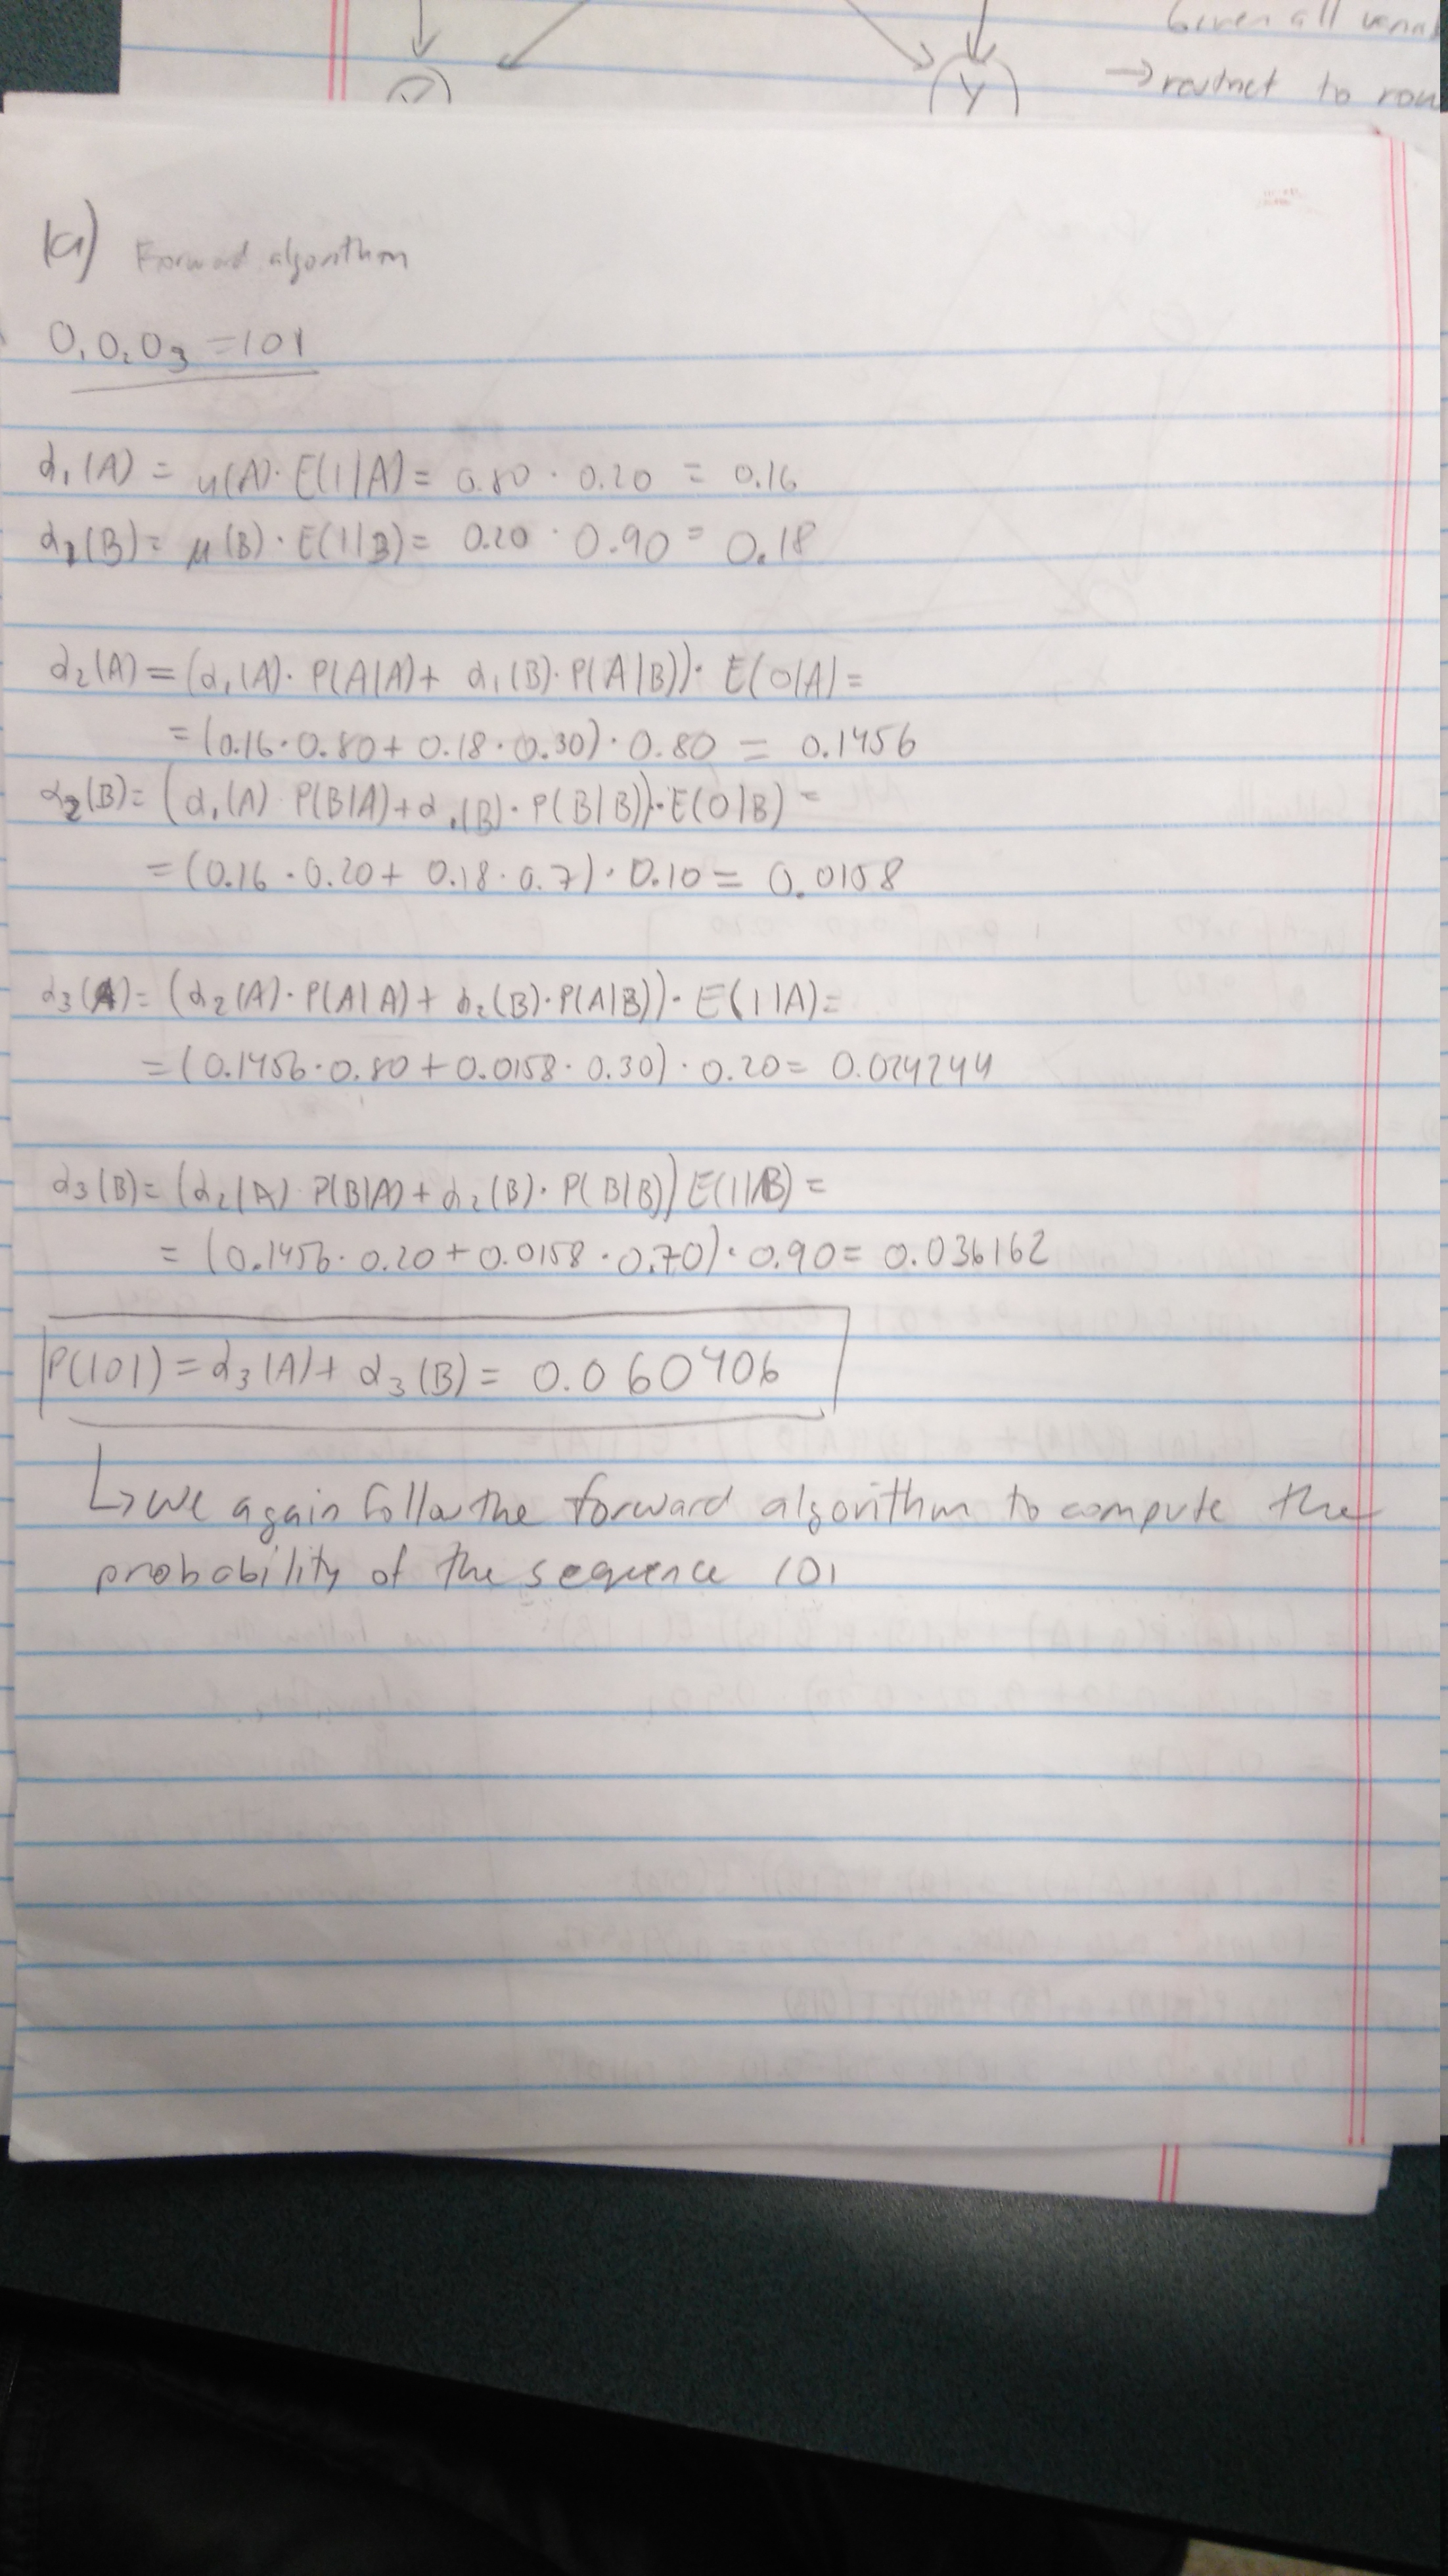 Given all
→ restrict to
Y
1a) Forward algorithm
O₁O₂O₃ = 101
α₁(A) = μ(A)· E(1|A) = 0.80 · 0.20 = 0.16
α₁(B) = μ(B) · E(1|B) = 0.20 · 0.90 = 0.18
α₂(A) = (α₁(A) · P(A|A) + α₁(B) · P(A|B)) · E(0|A) =
= (0.16 · 0.80 + 0.18 · 0.30) · 0.80 = 0.1456
α₂(B) = (α₁(A) P(B|A) + α₁(B) · P(B|B)) · E(0|B) =
= (0.16 · 0.20 + 0.18 · 0.7) · 0.10 = 0.0158
α₃(A) = (α₂(A) · P(A|A) + α₂(B) · P(A|B)) · E(1|A) =
= (0.1456 · 0.80 + 0.0158 · 0.30) · 0.20 = 0.024244
α₃(B) = (α₂(A) P(B|A) + α₂(B) · P(B|B)) E(1|B) =
= (0.1456 · 0.20 + 0.0158 · 0.70) · 0.90 = 0.036162
P(101) = α₃(A) + α₃(B) = 0.060406
↳ we again follow the forward algorithm to compute the
probability of the sequence 101